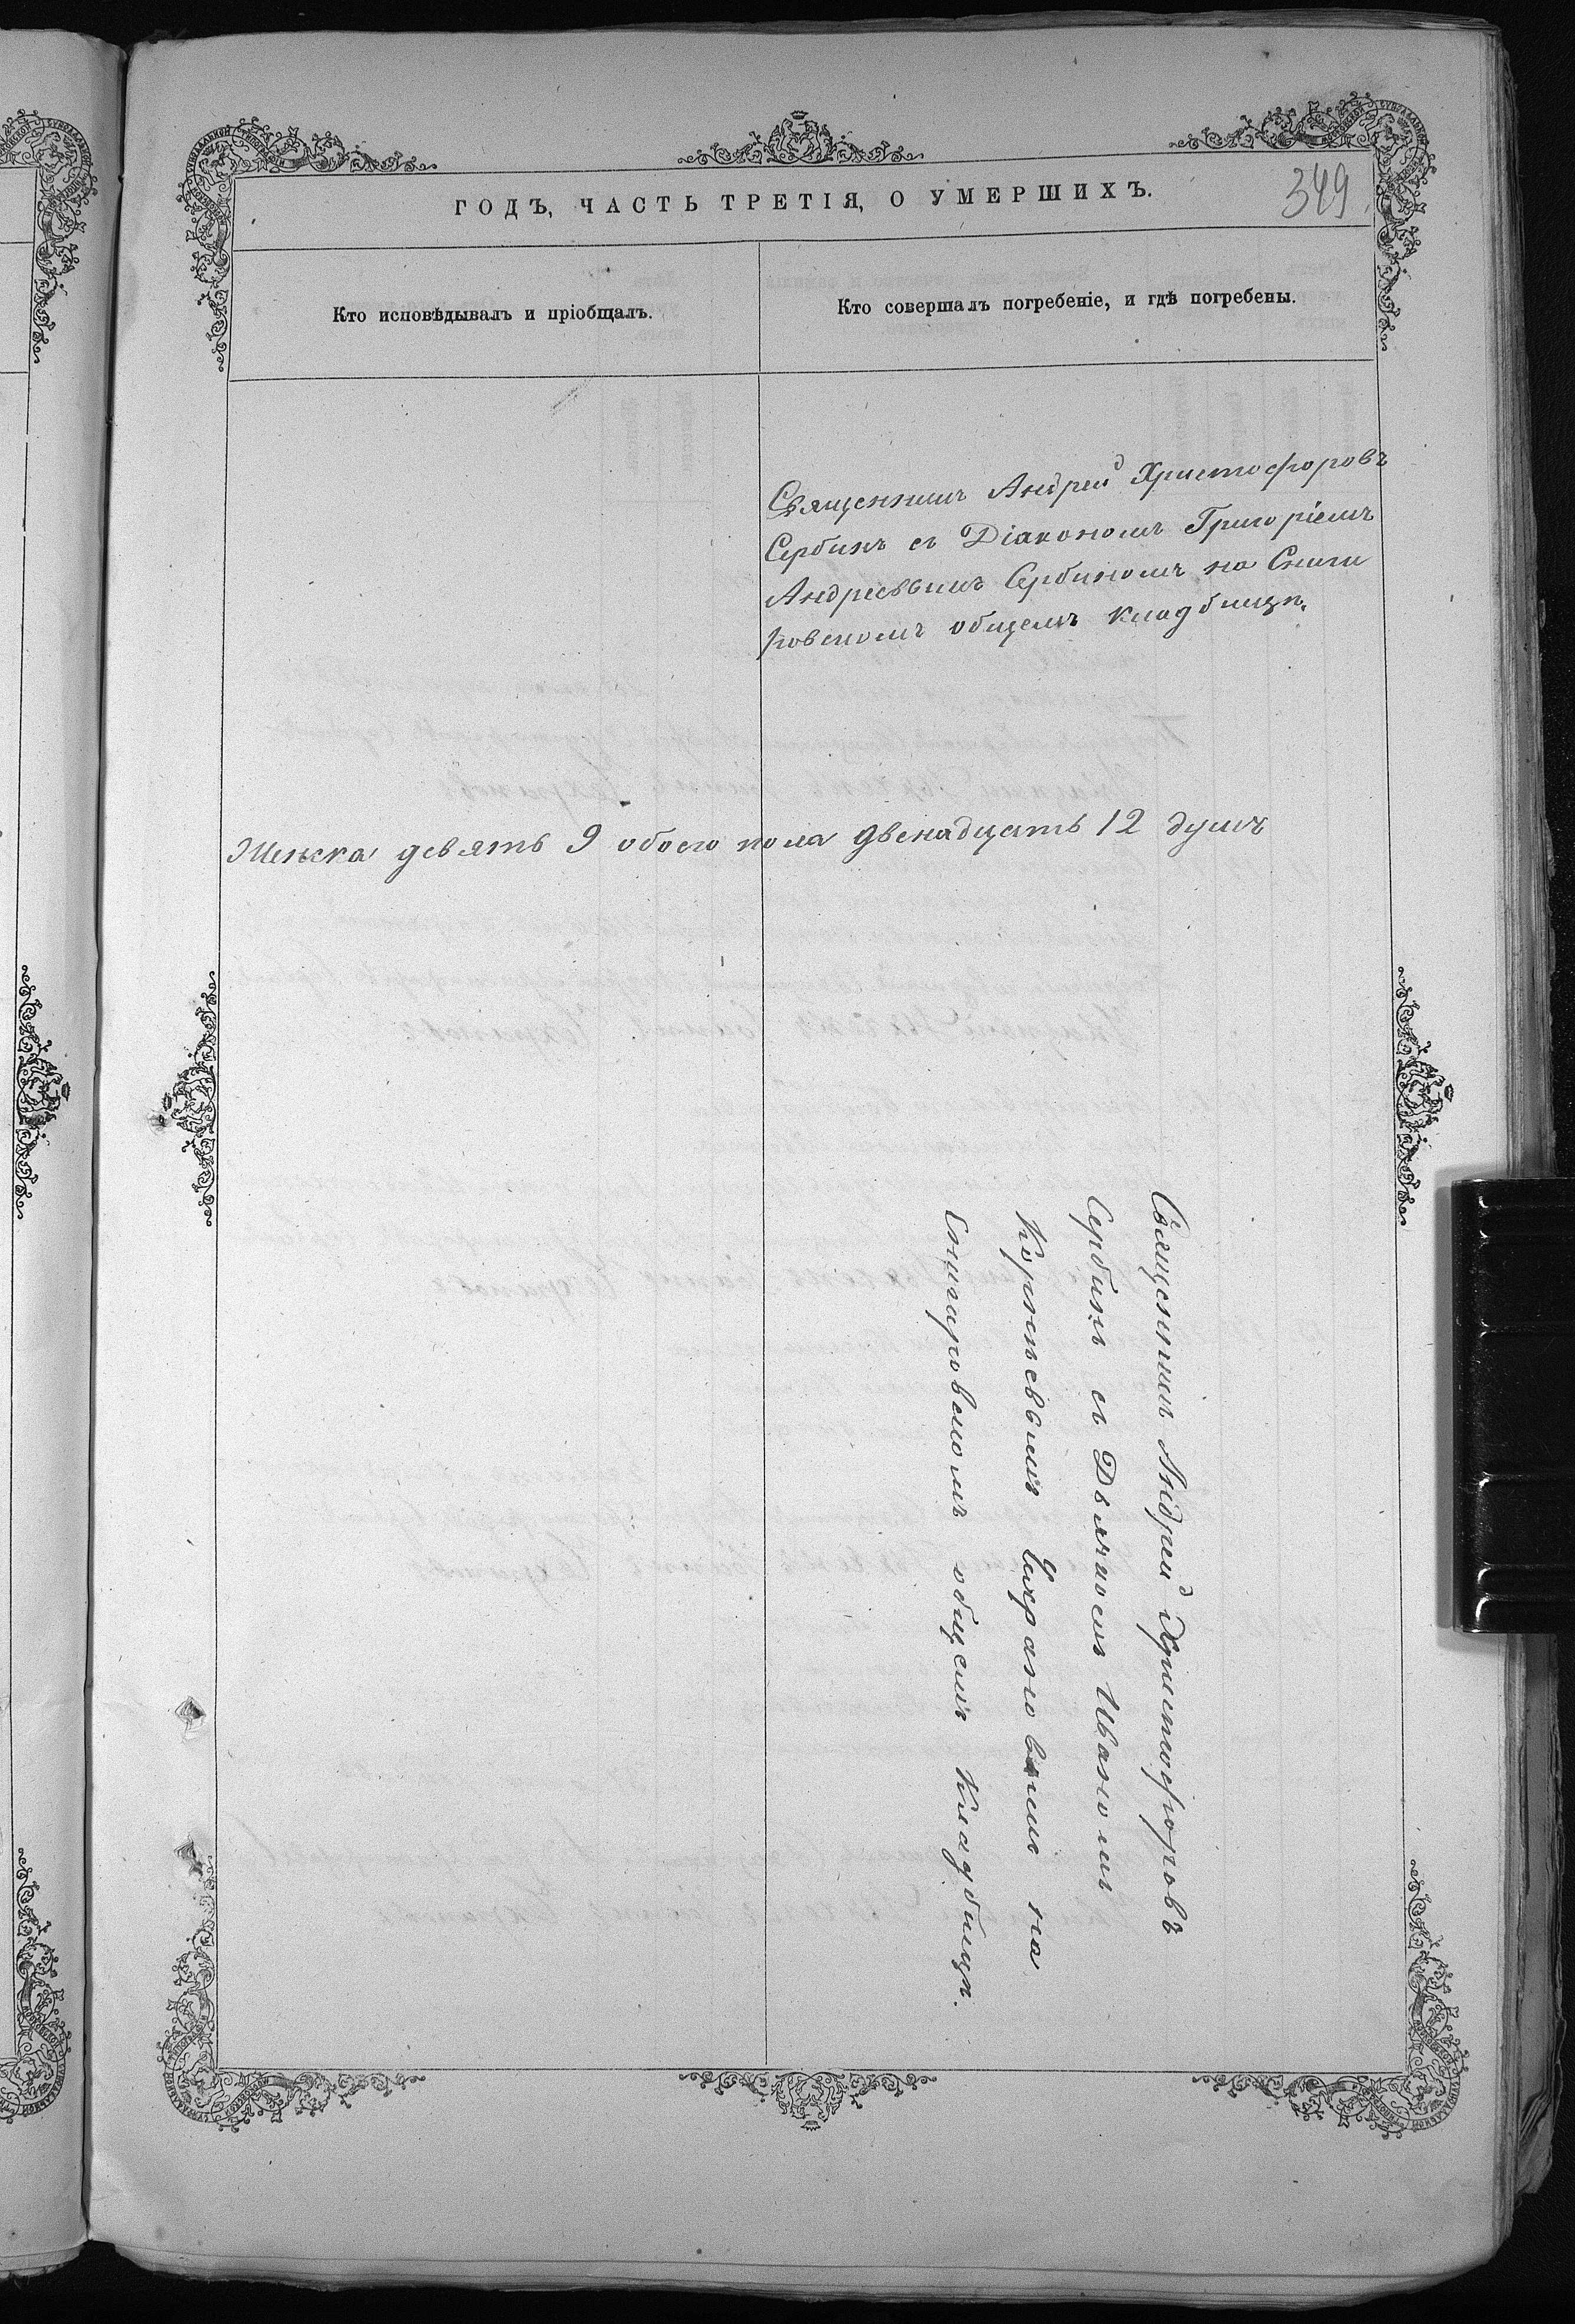 ГОДЪ, ЧАСТЬ ТРЕТІЯ, О УМЕРШИХЪ.
349.
Кто исповѣдывалъ и пріобщалъ.
Кто совершалъ погребеніе, и гдѣ погребены.
Священникъ Андрей Христофоровъ
Сербинъ съ Діакономъ Григоріемъ
Андреевымъ Сербиномъ на Снига
ровскомъ общемъ кладбищѣ.
Женска девять 9 обоего пола двенадцать 12 душъ
Священникъ Андрей Христофоровъ
Сербинъ съ Дьячкомъ Иваномъ
Корнѣевымъ на
Снигаровскомъ общемъ кладбищѣ.